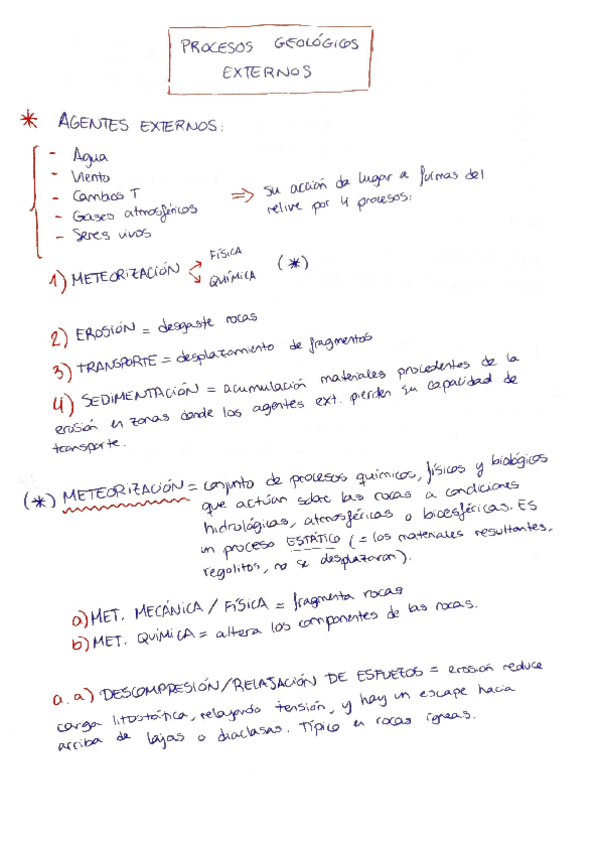 PROCESOS GEOLÓGICOS
EXTERNOS
* AGENTES EXTERNOS:
- Agua
- Viento
- Cambios T
- Gases atmosféricos
- Seres vivos
⇒ Su acción da lugar a formas del
relive por 4 procesos:
1) METEORIZACIÓN
→ FÍSICA
→ QUÍMICA
(*)
2) EROSIÓN = desgaste rocas
3) TRANSPORTE = desplazamiento de fragmentos
4) SEDIMENTACIÓN = acumulación materiales procedentes de la
erosión en zonas donde los agentes ext. pierden su capacidad de
transporte.
(*) METEORIZACIÓN = conjunto de procesos químicos, físicos y biológicos
que actúan sobre las rocas a condiciones
hidrológicas, atmosféricas o bioesféricas. ES
un proceso ESTÁTICO (= los materiales resultantes,
regolitos, no se desplazaron).
a) MET. MECÁNICA / FÍSICA = fragmenta rocas
b) MET. QUÍMICA = altera los componentes de las rocas.
a.a) DESCOMPRESIÓN/RELAJACIÓN DE ESFUEZOS = erosión reduce
carga litostática, relajando tensión, y hay un escape hacia
arriba de lajas o diaclasas. Típico en rocas ígneas.